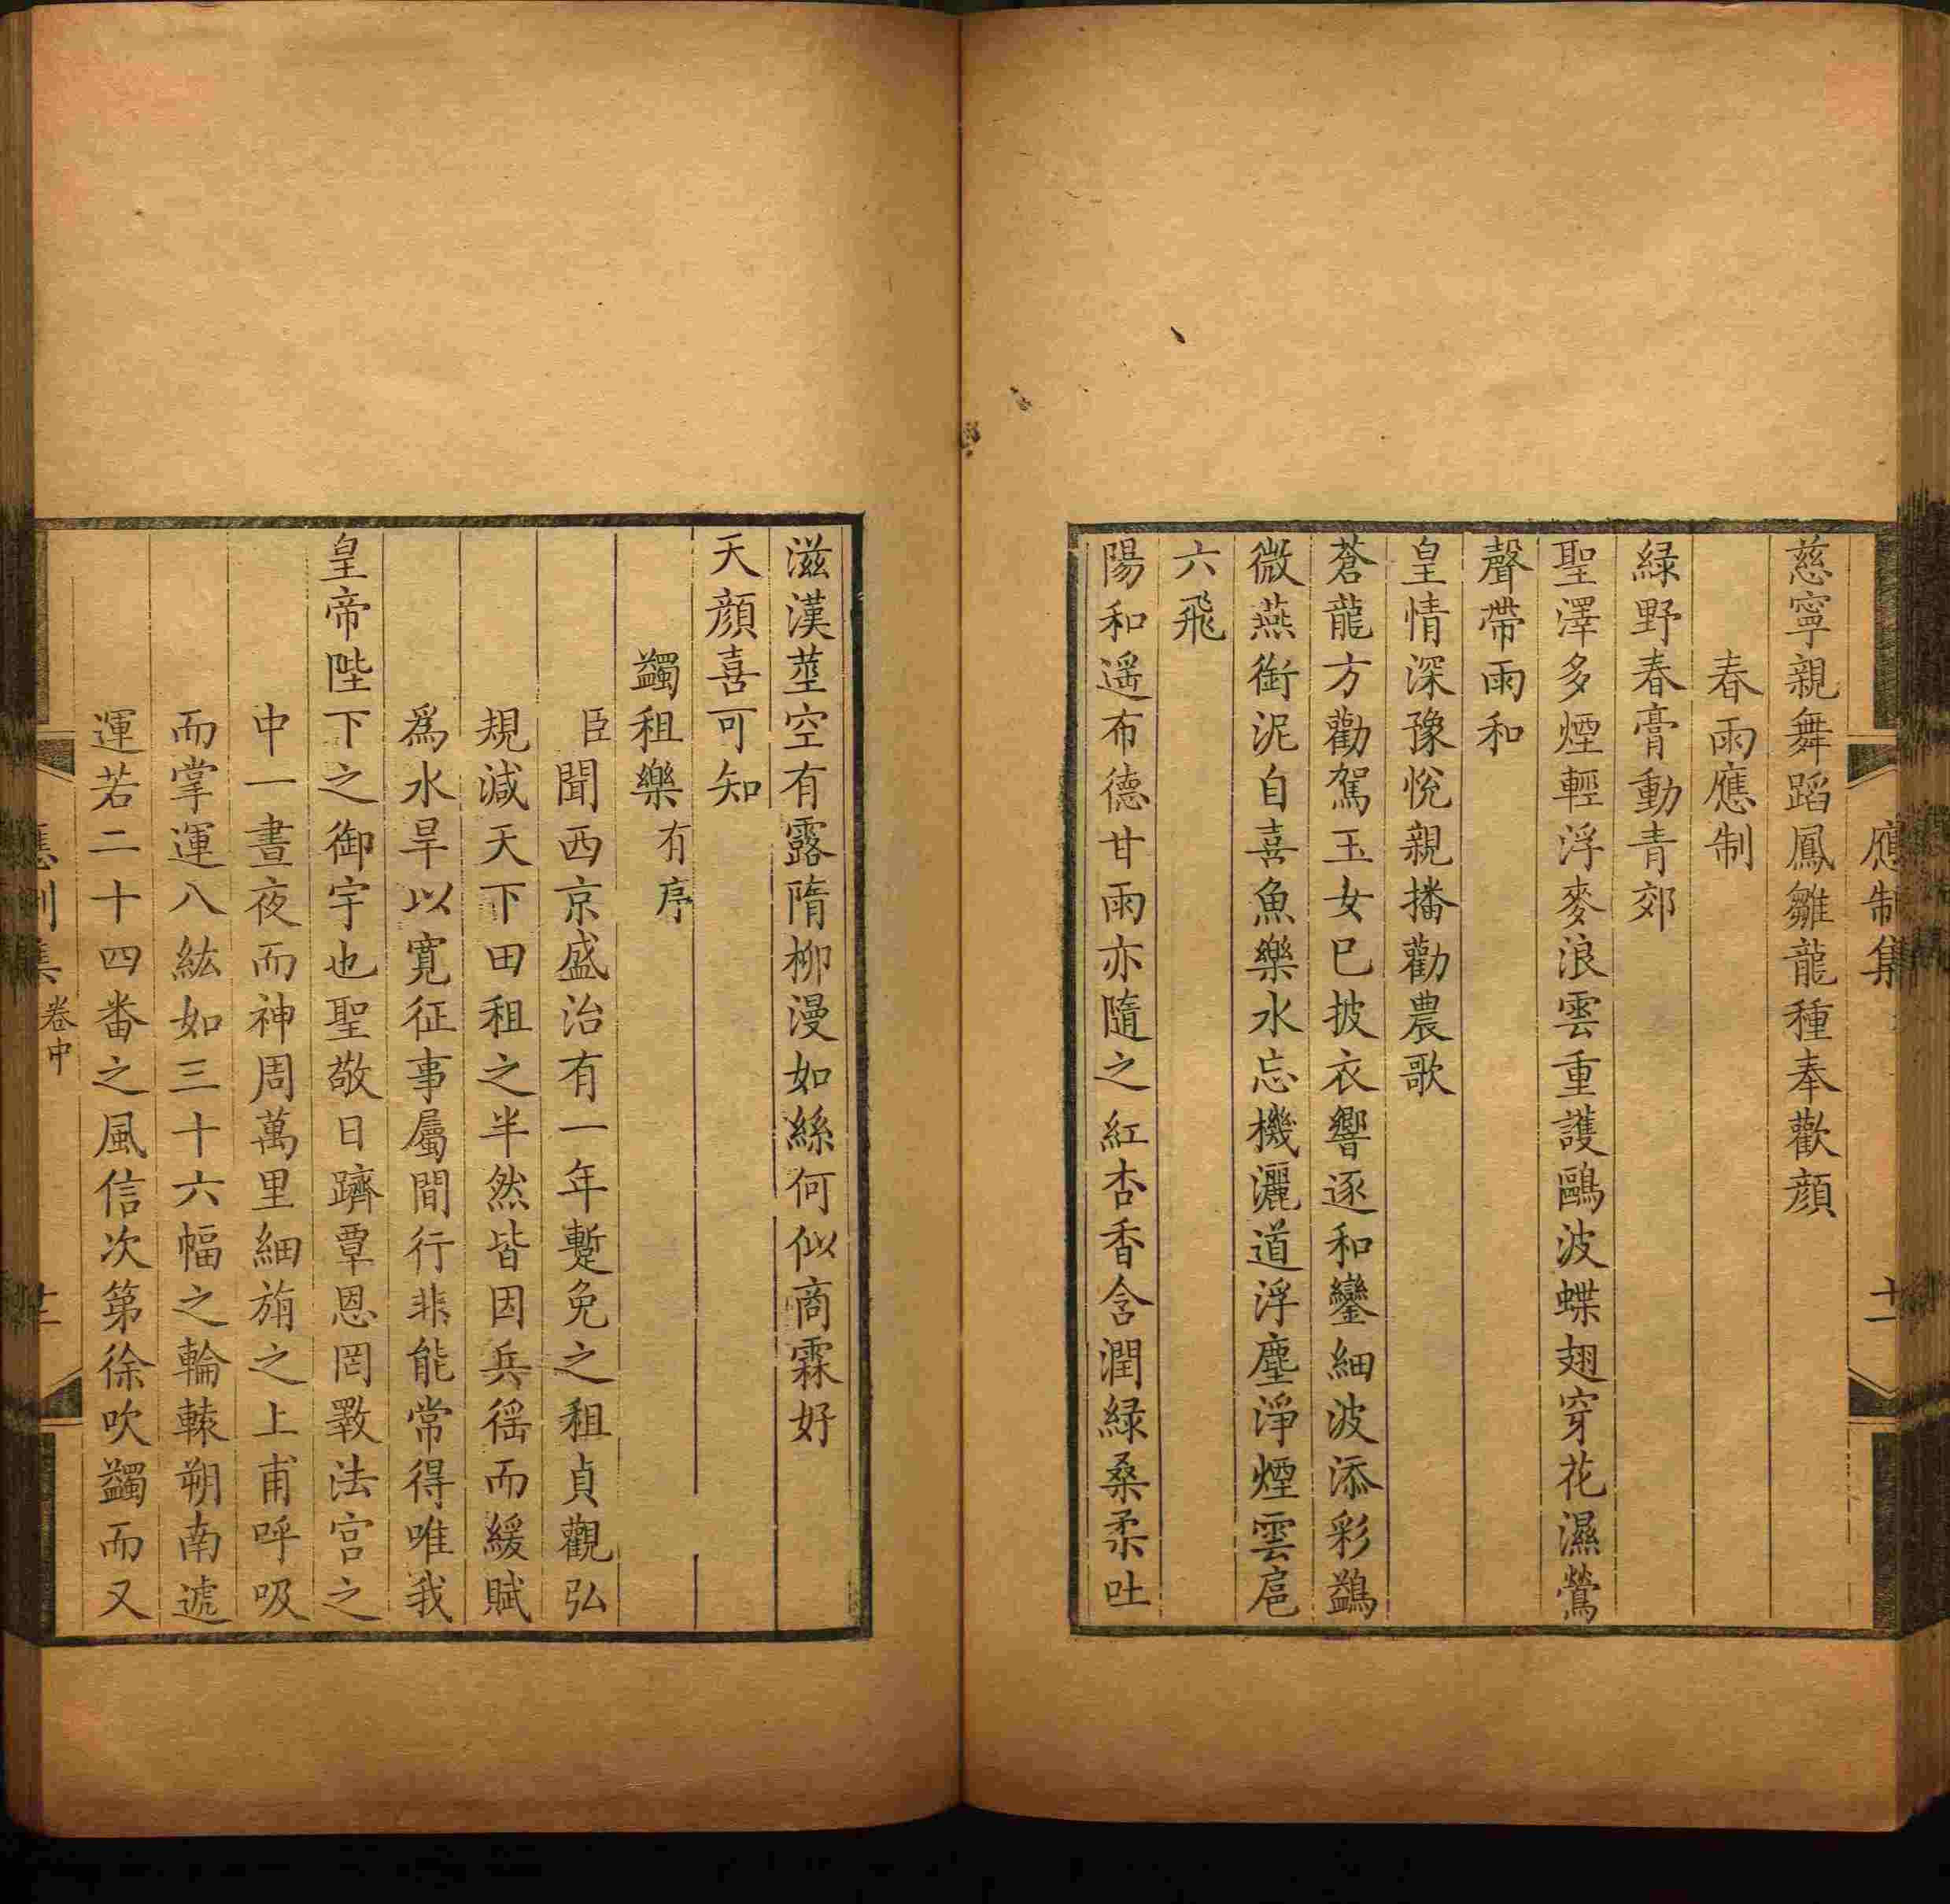 應制集
十一
慈寧親舞蹈鳳雛龍種奉歡顔
春雨應制
緑野春膏動青郊
聖澤多煙輕浮麥浪雲重護鷗波蝶翅穿花濕鶯
聲帶雨和
皇情深豫悅親播勸農歌
蒼龍方勸駕玉女巳披衣響逐和鑾細波添彩鷁
微燕銜泥自喜魚樂水忘機灑道浮塵淨煙雲扈
六飛
陽和遥布德甘雨亦隨之紅杏香含潤緑桑柔吐
滋漢莖空有露隋柳漫如絲何似商霖好
天顔喜可知
蠲租樂有序
臣聞西京盛治有一年蹔免之租貞觀弘
規減天下田租之半然皆因兵徭而緩賦
爲水旱以寛征事屬間行非能常得唯我
皇帝陛下之御宇也聖敬日躋覃恩罔斁法宫之
中一晝夜而神周萬里細旃之上甫呼吸
而掌運八紘如三十六幅之輪轅朔南遞
運若二十四番之風信次第徐吹蠲而又
應制集
卷中